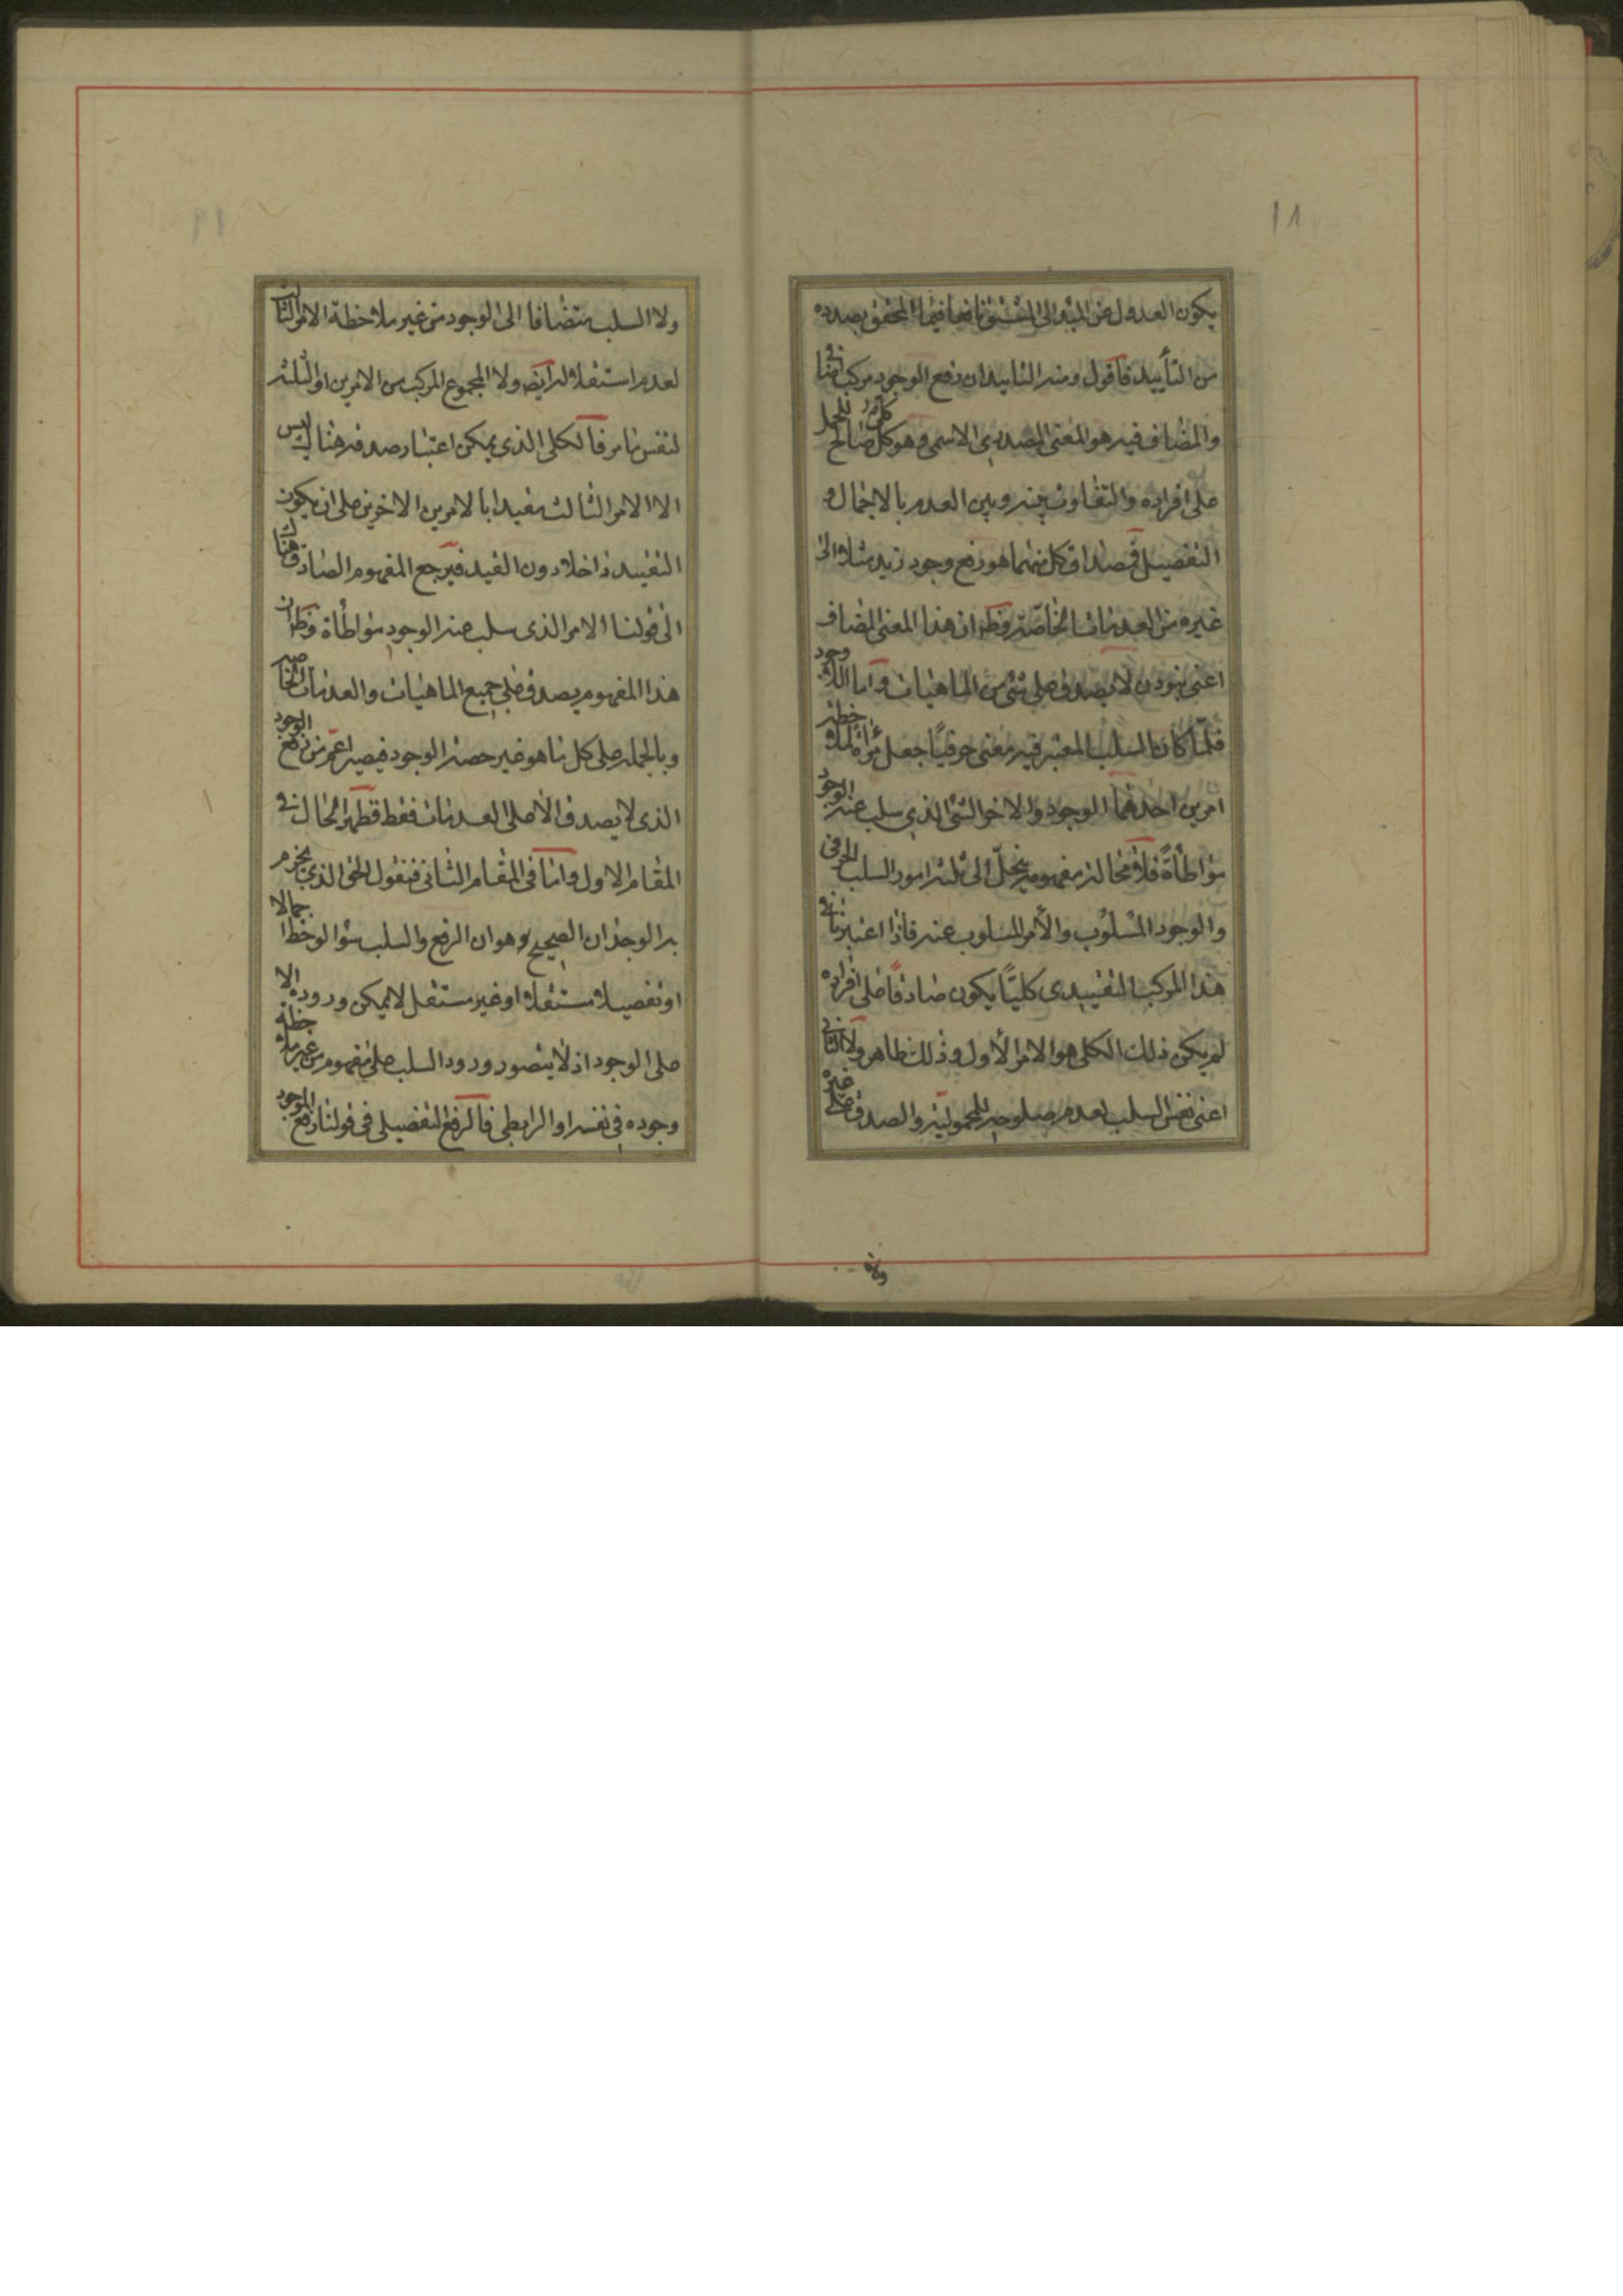 ١٨
يكون العدول عن المبدء الى المشتق نافعا فيما المحقق بصدده
من التأييد فاقول ومنه التاييد ان رفع الوجود مركب اضافي
والمضاف فيه هو المعنى المصدري الاسمى وهو كلى صالح للحمل
على افراده والتفاوت بينه وبين العدم بالاجمال و
التفصيل فمصداق كل منهما هو رفع وجود زيد مثلا الى
غيره من العدمات الخاصة وظ ان هذا المعنى المضاف
اعنى نبودن لا يصدق على شئ من الماهيات واما اللاوجود
فلما كان السلب المعتبر فيه معنى حرفيا جعل مرأة لملاحظة
امرين احدهما الوجود والاخر الشئ الذي سلب عنه الوجود
مواطأة فلا محالة مفهومه ينحل الى ثلثة امور السلب الحرفى
والوجود المسلوب والأمر المسلوب عنه فاذا اعتبرنا في
هذا المركب التقييدى كليّا يكون صادقا على افراده
لم يكن ذلك الكلى هو الامر الأول وذلك ظاهر ولا الثاني
اعنى نفس السلب لعدم صلوحه للمحمولية والصدق على غيره
ولا
١٩
ولا السلب متضافا الى الوجود من غير ملاحظة الامر الثالث
لعدم استقلاله ايضه ولا المجموع المركب من الامرين او الثلثة
لنفس ما مر فالكلى الذى يمكن اعتبار صدقه هناك ليس
الا الامر الثالث مقيدا بالامرين الاخرين على ان يكون
التقييد داخلا دون القيد فيرجع المفهوم الصادق هناك
الى قولنا الامر الذى سلب عنه الوجود مواطأة وظ ان
هذا المفهوم يصدق على جميع الماهيات والعدمات الخاصة
وبالجملة على كل ما هو غير حصة الوجود فيصير اعم من رفع الوجود
الذى لا يصدق الا على العدمات فقط فظهر الحال في
المقام الاول واما فى المقام الثانى فنقول الحق الذي يجزم
به الوجدان الصحيح وهو ان الرفع والسلب سوا لوحظا اجمالا
او تفصيلا مستقلا او غير مستقل لا يمكن وروده الا
على الوجود اذ لا يتصور ورود السلب على مفهوم من غير ملاحظة
وجوده في نفسه او الرابطى فالرفع التفصيلى فى قولنا رفع الوجود